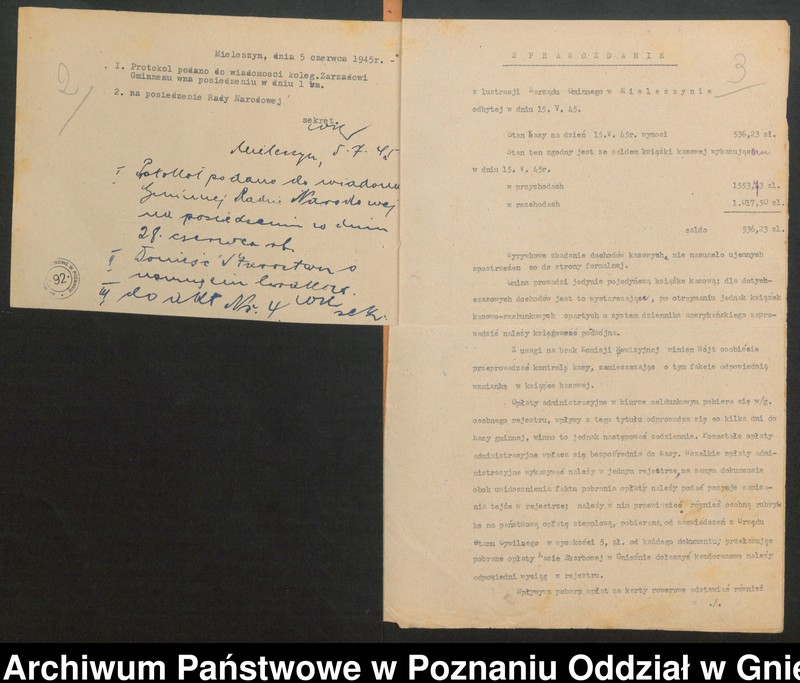 2/
Mieleszyn, dnia 5 czerwca 1945r. -
1. Protokol podano do wiadomosci koleg.Zarzadowi
Gminnemu wna posiedzeniu w dniu 1 bm.
2. na posiedzenie Rady Narodowej
sekret.
Mieleszyn, 5.7.45
I Protokół podano do wiadom
Gminnej Radzie Narodowej
na posiedzeniu w dniu
28. czerwca rb.
II Donieść Starostwu o
usunięciu
III do akt Nr. 4
sekr.
92
3
S P R A W O Z D A N I E
z lustracji Zarządu Gminnego w M i e l e s z y n i e
odbytej w dniu 15. V. 45.
Stan Kasy na dzień 15.V. 45r. wynosi 536,23 zł.
Stan ten zgodny jest ze saldem książki kasowej wykazującem
w dniu 15. V. 45r.
w przychodach 1553,73 zł.
w rozchodach 1.017,50 zł.
saldo 536,23 zł.
Wyrywkowe zbadanie dochodów kasowych, nie nasunęło ujemnych
spostrzeżeń co do strony formalnej.
Gmina prowadzi jedynie pojedyńczą książkę kasową; dla dotych-
czasowych dochodów jest to wystarczające, po otrzymaniu jednak książek
kasowo-rachunkowych opartych o system dziennika amerykańskiego zapro-
wadzić należy księgowość podwójną.
Z uwagi na brak Komisji Rewizyjnej winien Wójt osobiście
przeprowadzać kontrolę kasy, zamieszczając o tym fakcie odpowiednią
wzmiankę w książce kasowej.
Opłaty administracyjne w biurze meldunkowym pobiera się w/g.
osobnego rejestru, wpływy z tego tytułu odprowadza się co kilka dni do
Kasy gminnej, winno to jednak następować codziennie. Pozostałe opłaty
administracyjne wpłaca się bezpośrednio do Kasy. Wszelkie opłaty admi-
nistracyjne wykazywać należy w jednym rejestrze, na samym dokumencie
obok uwidocznienia faktu pobrania opłaty należy podać pozycję zapisa-
nia tejże w rejestrze; należy w nim przewidzieć również osobną rubry-
kę na państwową opłatę stemplową, pobieraną od zaświadczeń z Urzędu
Stanu Cywilnego w wysokości 5, zł. od każdego dokumentu; przekazując
pobrane opłaty Kasie Skarbowej w Gnieźnie dołączyć każdorazowo należy
odpowiedni wyciąg z rejestru.
Wpływy z poboru opłat za karty rowerowe odstawiać również
./.
Archiwum Państwowe w Poznaniu Oddział w Gnie